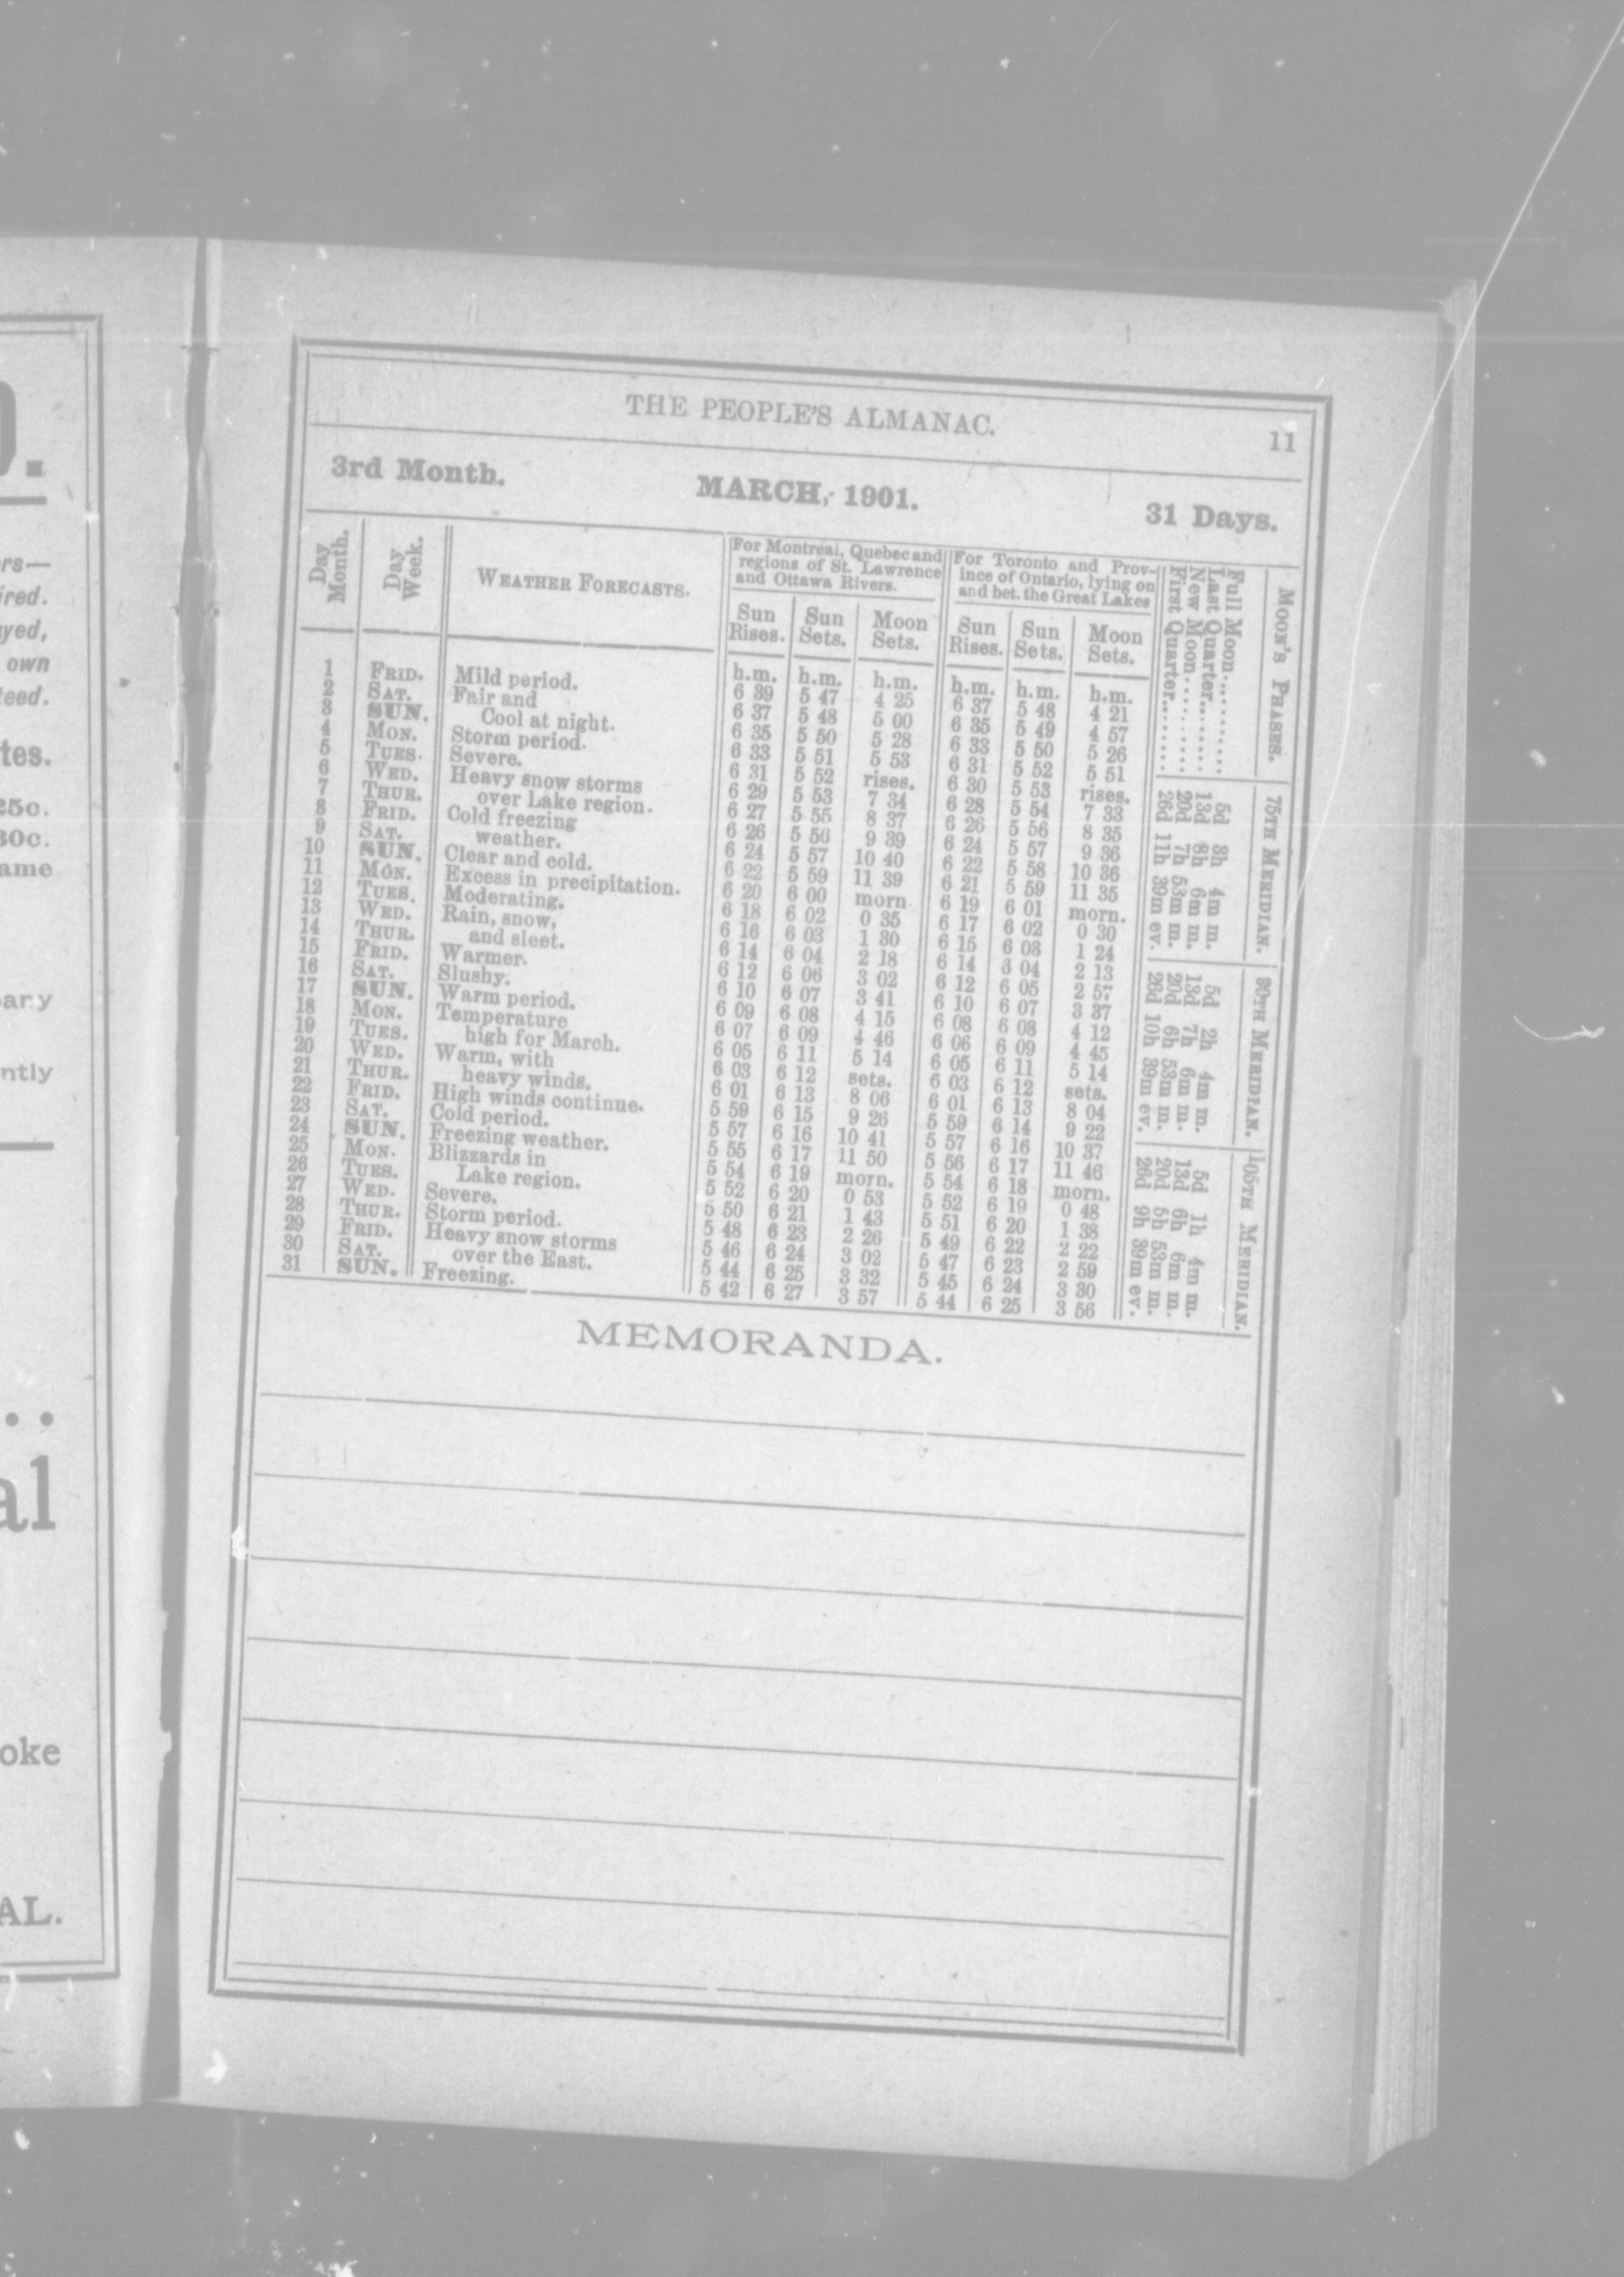 THE PEOPLE'S ALMANAC. 11
3rd Month. MARCH, 1901. 31 Days.
Day Month. Day Week. WEATHER FORECASTS.
For Montreal, Quebec and
regions of St. Lawrence
and Ottawa Rivers.
For Toronto and Prov-
ince of Ontario, lying on
and bet. the Great Lakes
Sun Rises. Sun Sets. Moon Sets. Sun Rises. Sun Sets. Moon Sets.
h.m. h.m. h.m. h.m. h.m. h.m.
1 FRID. Mild period. 6 39 5 47 4 25 6 37 5 48 4 21
2 SAT. Fair and 6 37 5 48 5 00 6 35 5 49 4 57
3 SUN. Cool at night. 6 35 5 50 5 28 6 33 5 50 5 26
4 MON. Storm period. 6 33 5 51 5 53 6 31 5 52 5 51
5 TUES. Severe. 6 31 5 52 rises. 6 30 5 53 rises.
6 WED. Heavy snow storms 6 29 5 53 7 34 6 28 5 54 7 33
7 THUR. over Lake region. 6 27 5 55 8 37 6 26 5 56 8 35
8 FRID. Cold freezing 6 26 5 56 9 39 6 24 5 57 9 36
9 SAT. weather. 6 24 5 57 10 40 6 22 5 58 10 36
10 SUN. Clear and cold. 6 22 5 59 11 39 6 21 5 59 11 35
11 MON. Excess in precipitation. 6 20 6 00 morn. 6 19 6 01 morn.
12 TUES. Moderating. 6 18 6 02 0 35 6 17 6 02 0 30
13 WED. Rain, snow, 6 16 6 03 1 30 6 15 6 03 1 24
14 THUR. and sleet. 6 14 6 04 2 18 6 14 6 04 2 13
15 FRID. Warmer. 6 12 6 06 3 02 6 12 6 05 2 57
16 SAT. Slushy. 6 10 6 07 3 41 6 10 6 07 3 37
17 SUN. Warm period. 6 09 6 08 4 15 6 08 6 08 4 12
18 MON. Temperature 6 07 6 09 4 46 6 06 6 09 4 45
19 TUES. high for March. 6 05 6 11 5 14 6 05 6 11 5 14
20 WED. Warm, with 6 03 6 12 sets. 6 03 6 12 sets.
21 THUR. heavy winds. 6 01 6 13 8 06 6 01 6 13 8 04
22 FRID. High winds continue. 5 59 6 15 9 26 5 59 6 14 9 22
23 SAT. Cold period. 5 57 6 16 10 41 5 57 6 16 10 37
24 SUN. Freezing weather. 5 55 6 17 11 50 5 56 6 17 11 46
25 MON. Blizzards in 5 54 6 19 morn. 5 54 6 18 morn.
26 TUES. Lake region. 5 52 6 20 0 53 5 52 6 19 0 48
27 WED. Severe. 5 50 6 21 1 43 5 51 6 20 1 38
28 THUR. Storm period. 5 48 6 23 2 26 5 49 6 22 2 22
29 FRID. Heavy snow storms 5 46 6 24 3 02 5 47 6 23 2 59
30 SAT. over the East. 5 44 6 25 3 32 5 45 6 24 3 30
31 SUN. Freezing. 5 42 6 27 3 57 5 44 6 25 3 56
MOON'S PHASES. 75TH MERIDIAN. 90TH MERIDIAN. 105TH MERIDIAN.
Full Moon......... 5d 3h 4m m. 5d 2h 4m m. 5d 1h 4m m.
Last Quarter........ 13d 8h 6m m. 13d 7h 6m m. 13d 6h 6m m.
New Moon......... 20d 7h 53m m. 20d 6h 53m m. 20d 5h 53m m.
First Quarter........ 26d 11h 39m ev. 26d 10h 39m ev. 26d 9h 39m ev.
MEMORANDA.
O.
rs—
ired.
yed,
own
teed.
tes.
25c.
30c.
ame
any
ntly
..
al
oke
AL.